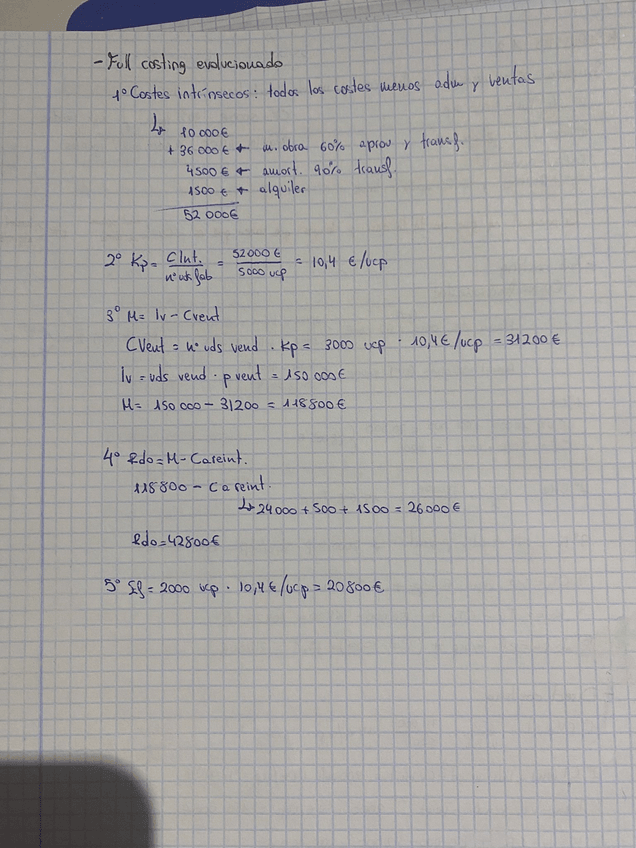 - Full costing evolucionado
1º Costes intrínsecos: todos los costes menos adm y ventas
↳ 10 000€
+ 36 000 € ← m. obra 60% aprov y transf.
4500 € ← amort. 90% transf.
1500 € ← alquiler
52 000€
2º Kp = C Int. / nº uds fab = 52000 € / 5000 ucp = 10,4 €/ucp
3º M = Iv - Cvent
CVent = nº uds vend · Kp = 3000 ucp · 10,4€/ucp = 31200€
Iv = uds vend · p vent = 150 000€
M = 150 000 - 31200 = 118800€
4º Rdo = M - Careint.
118800 - Careint.
↳ 24000 + 500 + 1500 = 26000€
Rdo = 42800€
5º Ef = 2000 ucp · 10,4 €/ucp = 20800€